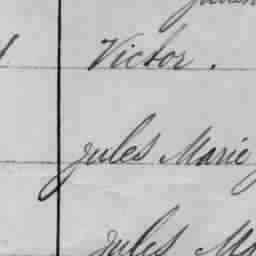 Victor.
Jules Marie
Jules